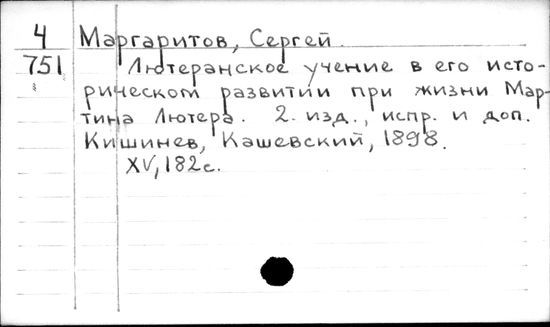 4 Маргаритов, Сергей.
751 Лютеранское учение в его исто-
рическом развитии при жизни Мар-
тина Лютера. 2. изд., испр. и доп.
Кишинев, Кашевский, 1898.
XV, 182 с.